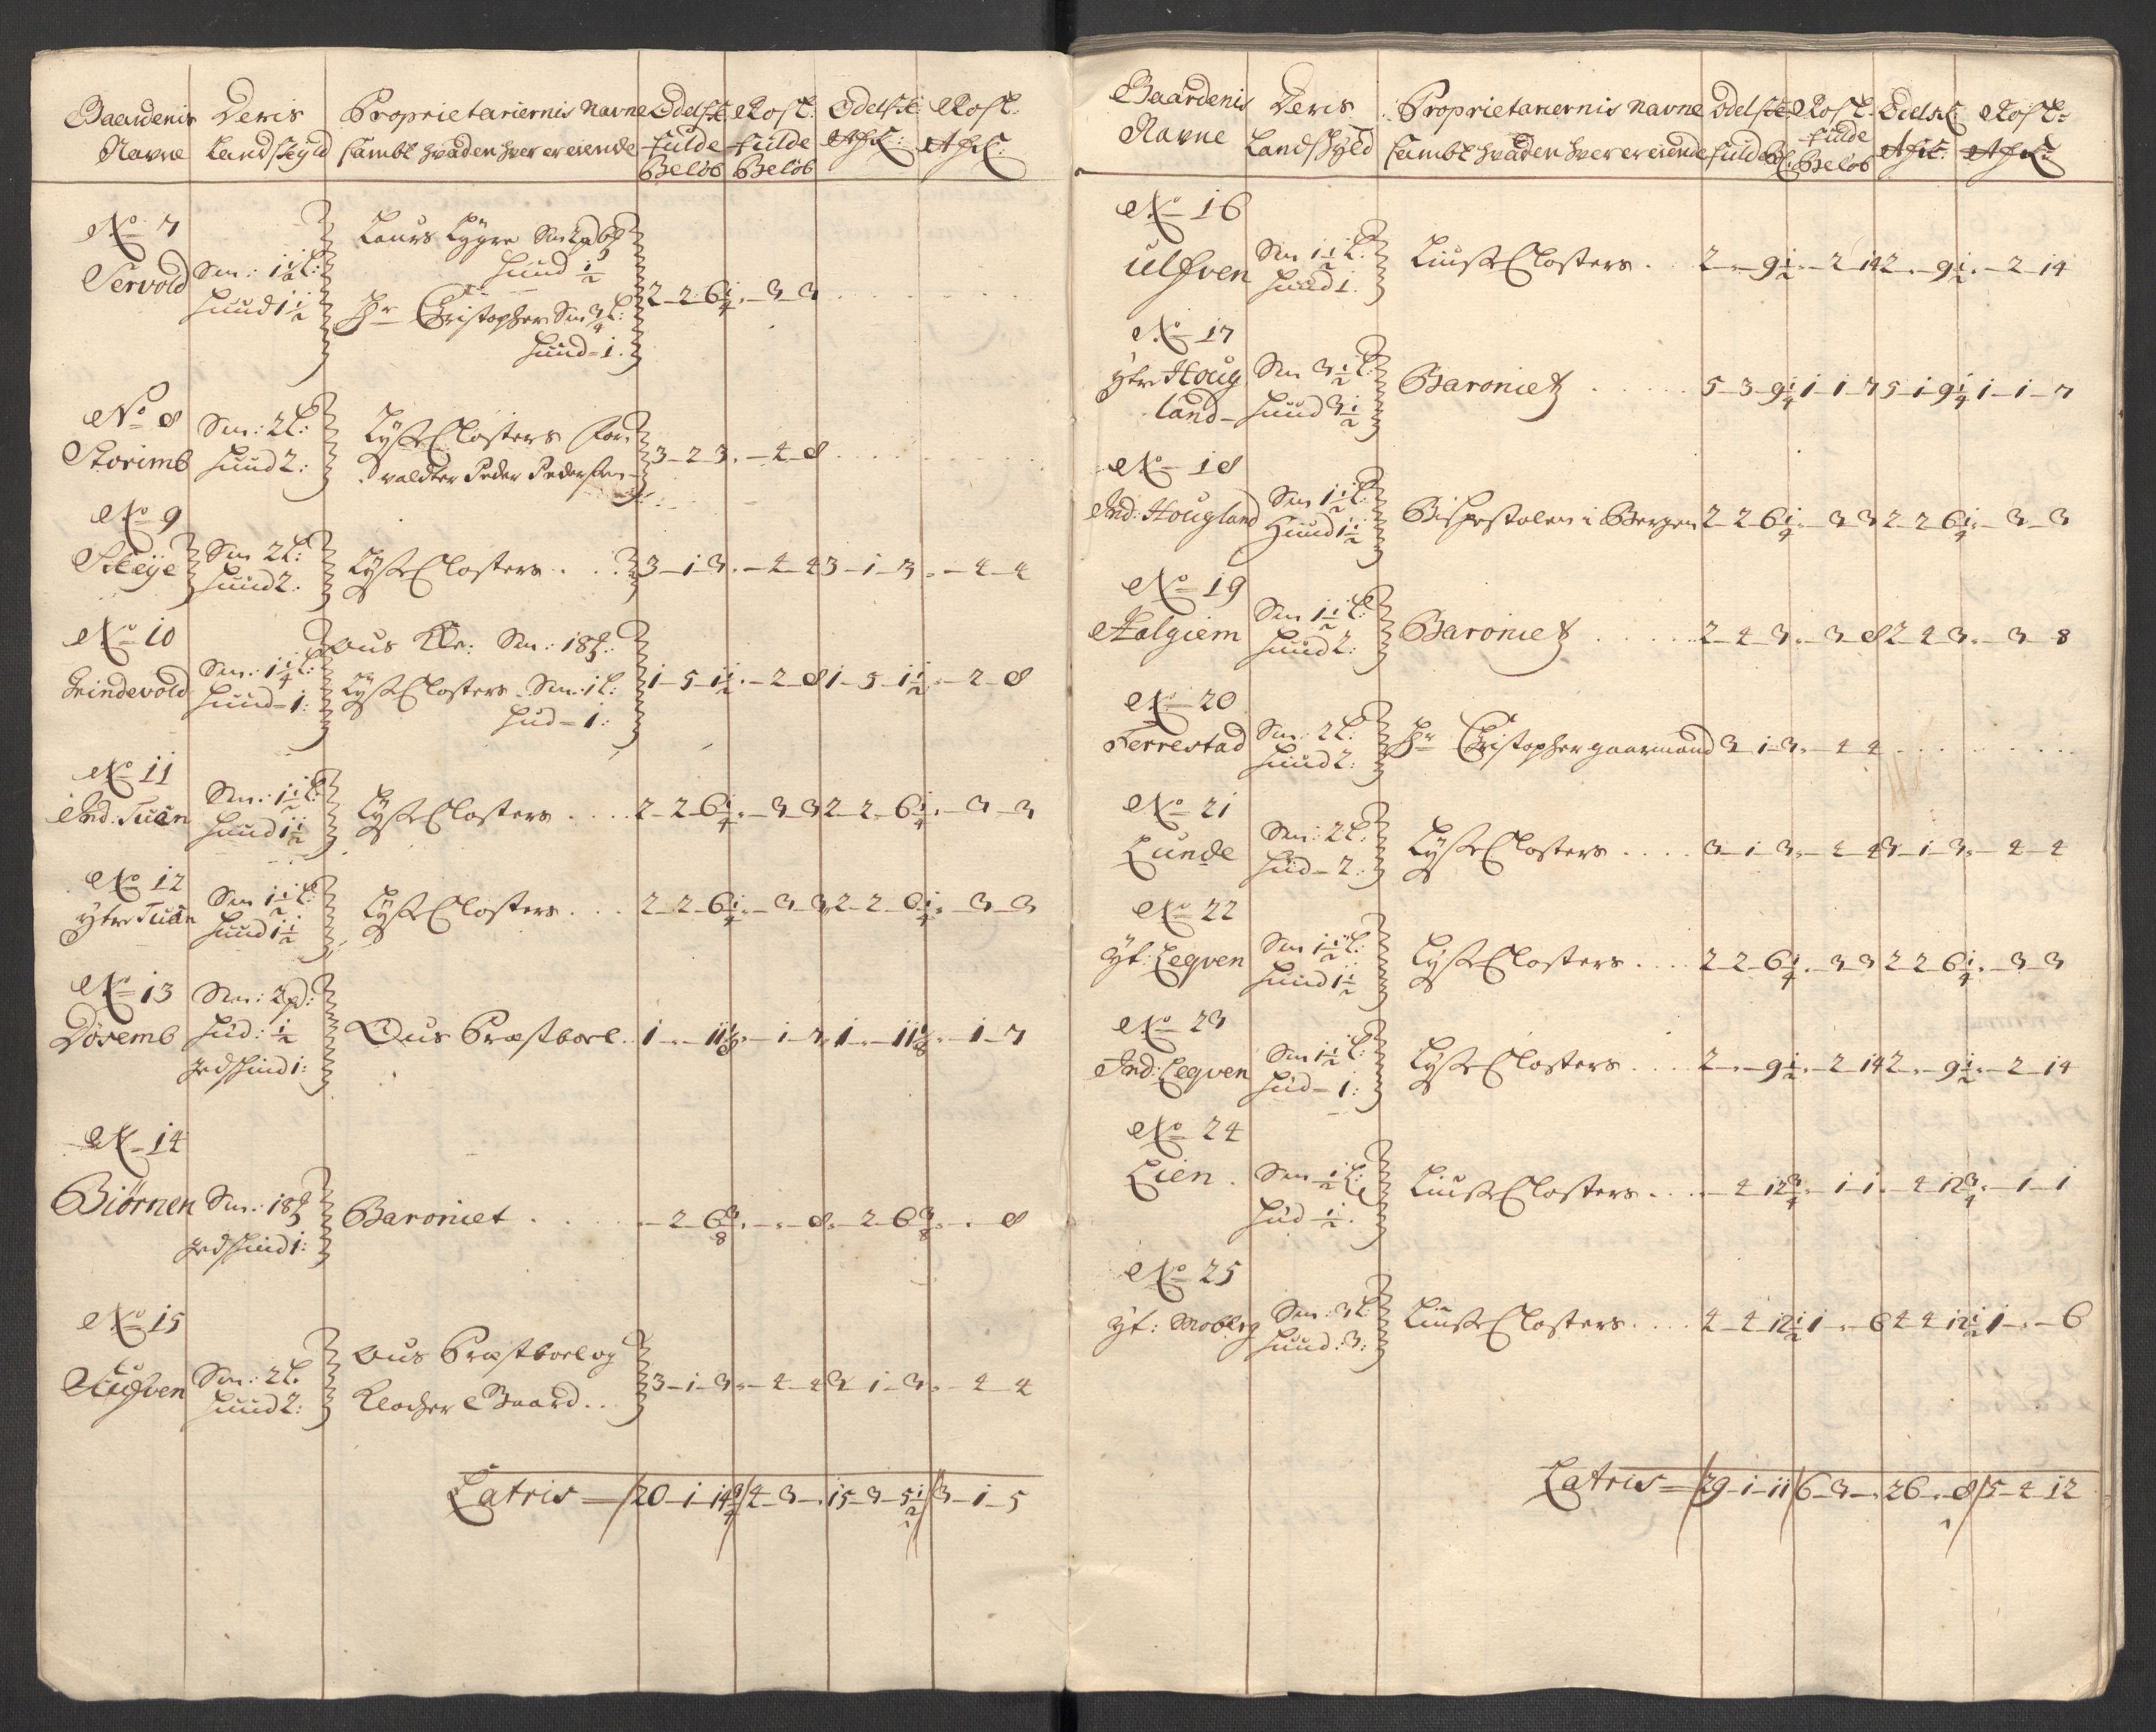 Gaardenis Navne | Deris Landskyld | Proprietariernis Navne sambt hvad en hver er eiende | Odelsk: fulde Beløb | Rost: fulde Beløb | Odelsk: Afk: | Rost: Afk:
No 7
Tervold | Sm: 1½ L: Huud 1½ | Laurs Lygre
Huud ½
Hr Christopher Sm ¾ L:
Huud - 1. | 2-2-6¼ | -3-3
No 8
Storimb | Sm: 2 L: Huud 2: | Lyse Closters for
valdter Peder Pedersen | 3-2-3 | -4-8
No 9
Skeije | Sm 2 L: Huud 2: | Lyse Closters | 3-1-3 | -4-4 | 3-1-3 | -4-4
No 10
Grindevold | Sm: 1¼ L: Huud - 1: | Ous Kle: Sm: 18
Lyse Closters Sm: 1 L:
Hud - 1: | 1-5-1½ | -2-8 | 1-5-1½ | -2-8
No 11
Ind: Tuen | Sm: 1½ L: Huud 1½ | Lyse Closters | 2-2-6¼ | -3-3 | 2-2-6¼ | -3-3
No 12
ytre Tuen | Sm 1½ L: Huud 1½ | Lyse Closters | 2-2-6¼ | -3-3 | 2-2-6¼ | -3-3
No 13
Døsemb | Sm: 2 p: Hud: ½ giedskind 1: | Ous Præstboel | 1-.-11⅛ | -1-7 | 1-.-11⅛ | -1-7
No 14
Biørnen | Sm: 18 giedskind 1: | Baroniet | -2-6⅜ | -.-8 | -2-6⅜ | -.-8
No 15
| Sm: 2 L. Huud 2: | Ous Præstboel og
Klocher Gaard | 3-1-3 | -4-4 | 3-1-3 | -4-4
Latris = | 20-1-14¾ | 4-3-. | 15-3-5½ | 3-1-5
Gaardenis Navne | Deris Landskyld | Proprietariernis Navne sambt hvad en hver er eiende | Odelsk: fulde Bel: | Rost: fulde Beløb | Odelsk: Afk: | Rost: Afk:
No 16
Ulfven | Sm 1½ L: Huud 1. | Liuse Closters | 2-.-9½ | -2-14 | 2-.-9½ | -2-14
No 17
ytre Houg
land | Sm 3½ L: Huud 3½ | Baroniet | 5-3-9¼ | 1-1-7 | 5-1-9¼ | 1-1-7
No 18
Ind: Hougland | Sm 1½ L: Huud 1½ | Bispestolen i Bergen | 2-2-6¼ | -3-3 | 2-2-6¼ | -3-3
No 19
Halgiem | Sm 1½ L: Huud 2: | Baroniet | 2-4-3 | -3-8 | 2-4-3 | -3-8
No 20
Ferrestad | Sm: 2 L: Huud 2: | Hr Christopher gaarmand | 3-1-3 | -4-4
No 21
Lunde | Sm: 2 L: Hud - 2: | Lyse Closters | 3-1-3 | -4-4 | 3-1-3 | -4-4
No 22
yt: Leqven | Sm 1½ L: Huud 1½ | Lyse Closters | 2-2-6¼ | -3-3 | 2-2-6¼ | -3-3
No 23
Ind: Leqven | Sm 1½ L: Hud - 1: | Lyse Closters | 2-.-9½ | -2-14 | 2-.-9½ | -2-14
No 24
Lien | Sm ½ L: Hud ½. | Liuse Closters | -4-12¾ | -1-1 | -4-12¾ | -1-1
No 25
yt: Moberg | Sm: 3 L: Huud: 3: | Liuse Closters | 4-4-12½ | 1-.-6 | 4-4-12½ | 1-.-6
Latris = | 29-1-11 | 6-3-. | 26-.-8 | 5-4-12